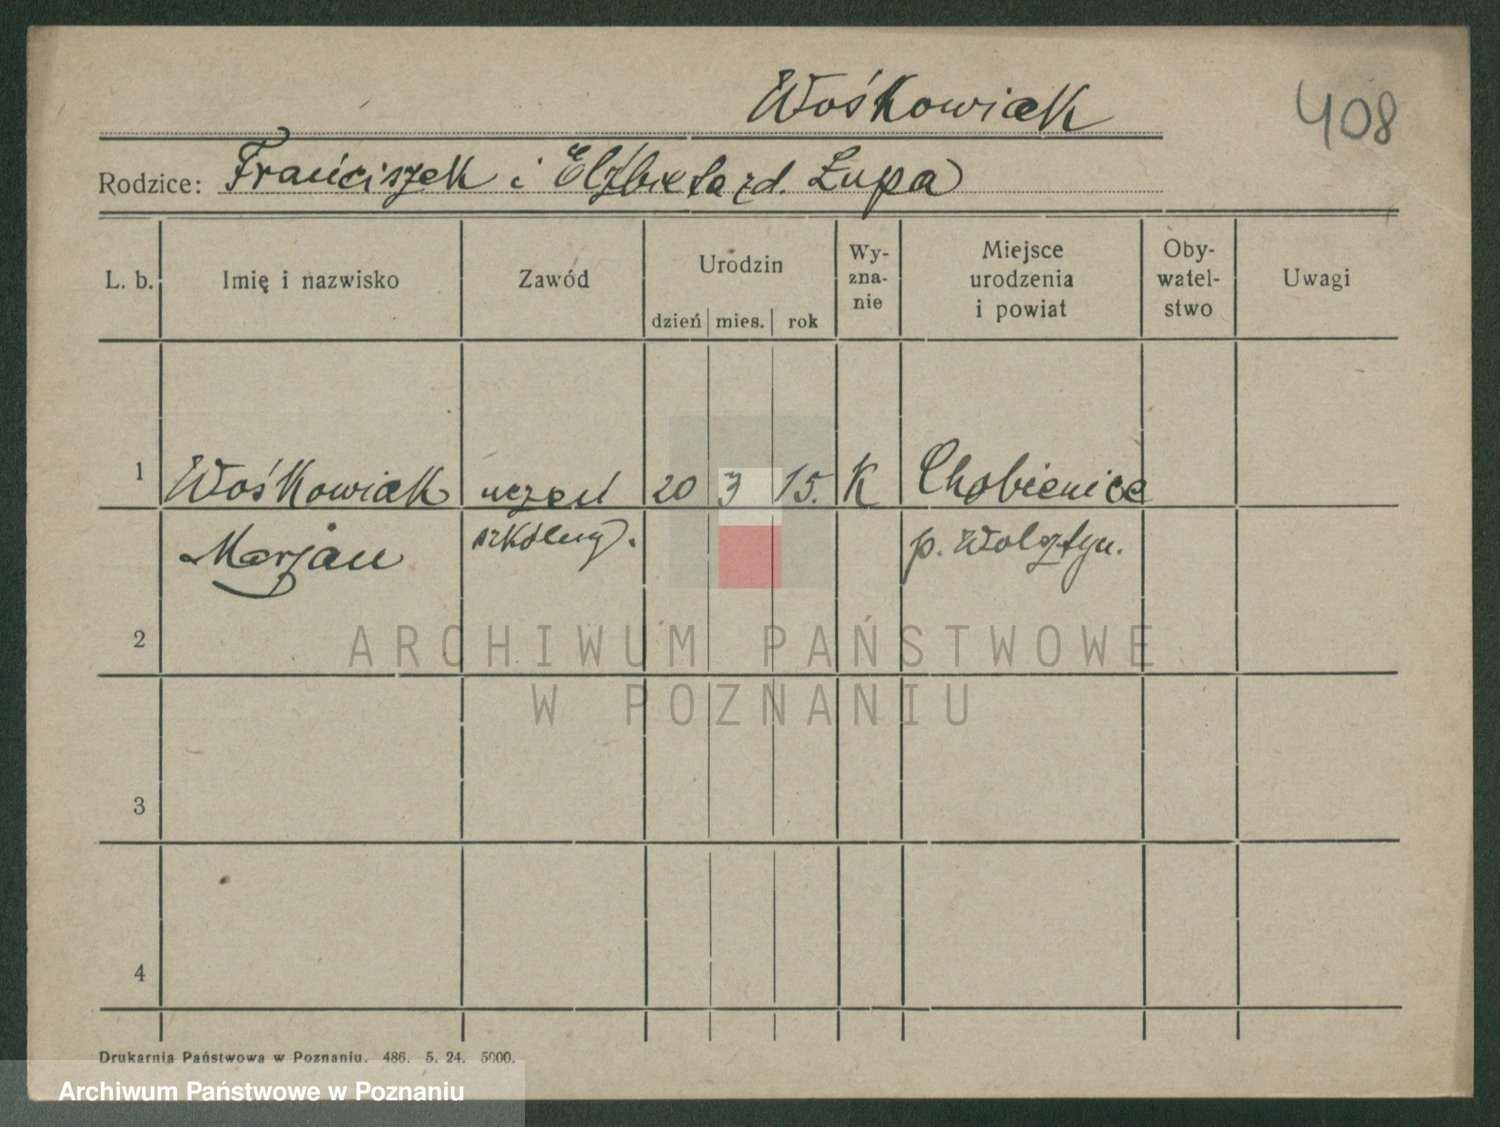 Wośkowiak
408
Rodzice: Franciszek i Elżbieta zd. Łupa
L. b. Imię i nazwisko Zawód Urodzin dzień mies. rok Wy-zna-nie Miejsce urodzenia i powiat Oby-watel-stwo Uwagi
1 Wośkowiak uczeń 20 3 15. K Chobienice
Marjan szkólny. p. Wolsztyn.
2
ARCHIWUM PAŃSTWOWE
W POZNANIU
3
4
Drukarnia Państwowa w Poznaniu. 486. 5. 24. 5000.
Archiwum Państwowe w Poznaniu